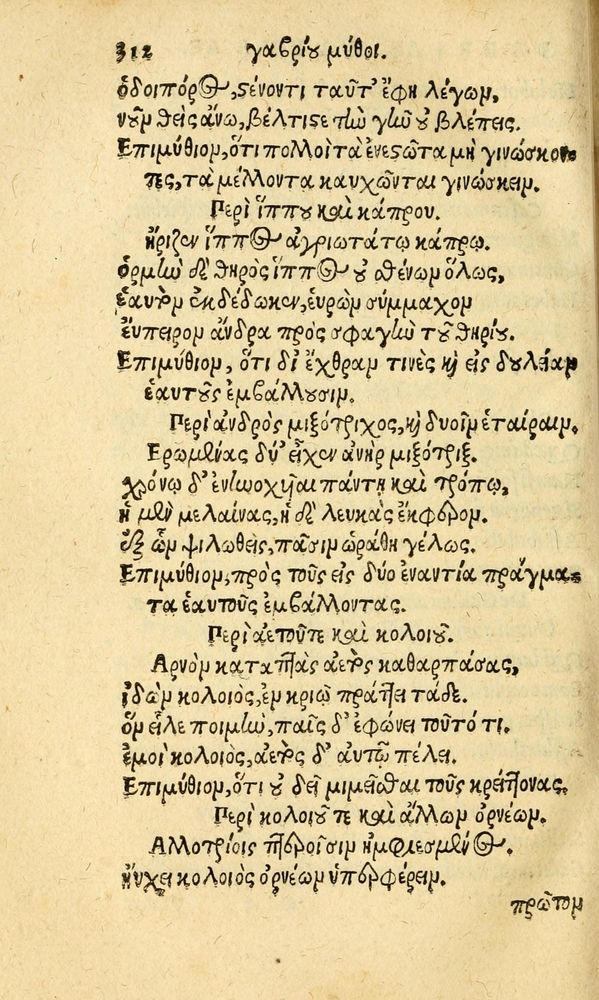 312 γαβρίου μῦθοι.
ὁδοιπόρος, στένοντι ταῦτ' ἔφη λέγων,
νοῦν θεὶς ἄνω, βέλτιστε τὴν γῆν οὐ βλέπεις.
Επιμύθιον, ὅτι πολλοὶ τὰ ἐνεστῶτα μὴ γινώσκον-
τες, τὰ μέλλοντα καυχῶνται γινώσκειν.
Περὶ ἵππου καὶ κάπρου.
ἤριζεν ἵππος ἀγριωτάτῳ κάπρῳ.
ὁρμὴν δὲ θηρὸς ἵππος οὐ σθένων ὅλως,
ἑαυτὸν ἐκδέδωκεν, εὑρὼν σύμμαχον
ἔυπειρον ἄνδρα πρὸς σφαγὴν τοῦ θηρίου.
Επιμύθιον, ὅτι δι' ἔχθραν τινὲς καὶ εἰς δουλείαν
ἑαυτοὺς ἐμβάλλουσιν.
Περὶ ἀνδρὸς μιξότριχος, καὶ δυοῖν ἑταίραιν.
Ερωμένας δύ' εἶχεν ἀνὴρ μιξότριξ.
χρόνῳ δ' ἐνωχλεῖται πάντη καὶ τρόπῳ,
ἡ μὲν μελαίνας, ἡ δὲ λευκὰς ἐκφέρον.
ἐξ ὧν ψιλωθεὶς, πᾶσιν ὡράθη γέλως.
Επιμύθιον, πρὸς τοὺς εἰς δύο ἐναντία πράγμα-
τα ἑαυτοὺς ἐμβάλλοντας.
Περὶ ἀετοῦ τε καὶ κολοιοῦ.
Αρνὸν καταπτὰς ἀετὸς καθαρπάσας,
ἰδὼν κολοιὸς, ἐν κριῷ πράττει τάδε.
ὃν εἷλε ποιμὴν, παῖς δ' ἐφώνει τοῦτό τι.
ἐμοὶ κολοιὸς, ἀετὸς δ' αὐτῷ πέλει.
Επιμύθιον, ὅτι οὐ δεῖ μιμεῖσθαι τοὺς κρείττονας.
Περὶ κολοιοῦ τε καὶ ἄλλων ὀρνέων.
Αλλοτρίοις πτεροῖσιν ἠμφιεσμένος.
ηὔχει κολοιὸς ὀρνέων ὑπερφέρειν.
πρῶτον